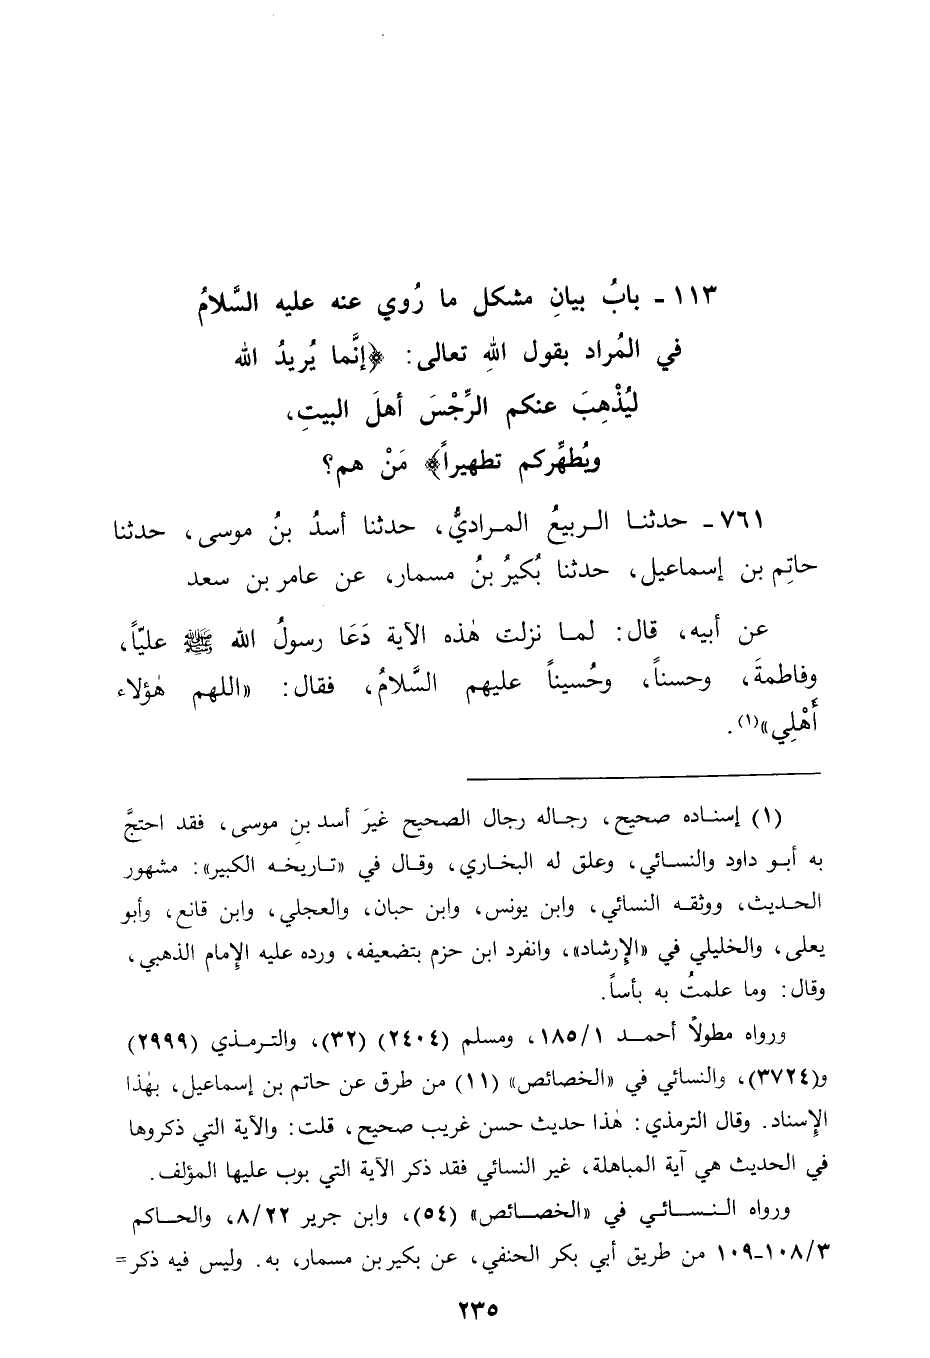 ١١٣ ـ بابُ بيانِ مشكل ما رُوي عنه عليه السَّلامُ
في المُراد بقول اللهِ تعالى: ﴿إنَّما يُريدُ الله
ليُذْهِبَ عنكم الرِّجْسَ أهلَ البيتِ،
ويُطهِّركم تطهيراً﴾ مَنْ هم؟
٧٦١ ـ حدثنا الربيعُ المراديُّ، حدثنا أسدُ بنُ موسى، حدثنا
حاتِم بن إسماعيل، حدثنا بُكيرُ بنُ مسمار، عن عامر بن سعد
عن أبيه، قال: لما نزلت هٰذه الآية دَعَا رسولُ الله ﷺ عليّاً،
وفاطمةَ، وحسناً، وحُسيناً عليهم السَّلامُ، فقال: «اللهم هٰؤلاء
أَهْلِي»(١).
(١) إسناده صحيح، رجاله رجال الصحيح غيرَ أسد بنِ موسى، فقد احتجَّ
به أبو داود والنسائي، وعلق له البخاري، وقال في «تاريخه الكبير»: مشهور
الحديث، ووثقه النسائي، وابن يونس، وابن حبان، والعجلي، وابن قانع، وأبو
يعلى، والخليلي في «الإرشاد»، وانفرد ابن حزم بتضعيفه، ورده عليه الإمام الذهبي،
وقال: وما علمتُ به بأساً.
ورواه مطولاً أحمد ١/١٨٥، ومسلم (٢٤٠٤) (٣٢)، والترمذي (٢٩٩٩)
و(٣٧٢٤)، والنسائي في «الخصائص» (١١) من طرق عن حاتم بن إسماعيل، بهٰذا
الإسناد. وقال الترمذي: هٰذا حديث حسن غريب صحيح، قلت: والآية التي ذكروها
في الحديث هي آية المباهلة، غير النسائي فقد ذكر الآية التي بوب عليها المؤلف.
ورواه النسائي في «الخصائص» (٥٤)، وابن جرير ٨/٢٢، والحاكم
٣/١٠٨-١٠٩ من طريق أبي بكر الحنفي، عن بكير بن مسمار، به. وليس فيه ذكر=
٢٣٥